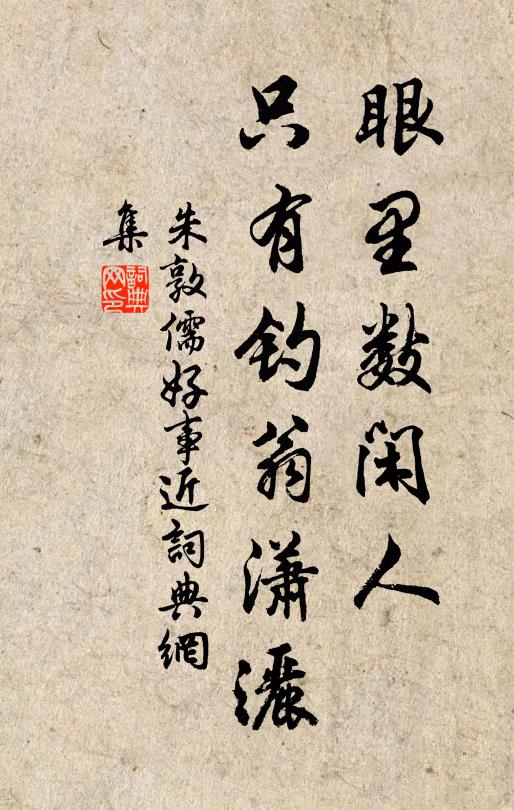 眼里数闲人
只有钓翁潇灑
朱敦儒好事近詞典網
集
詞典
网印